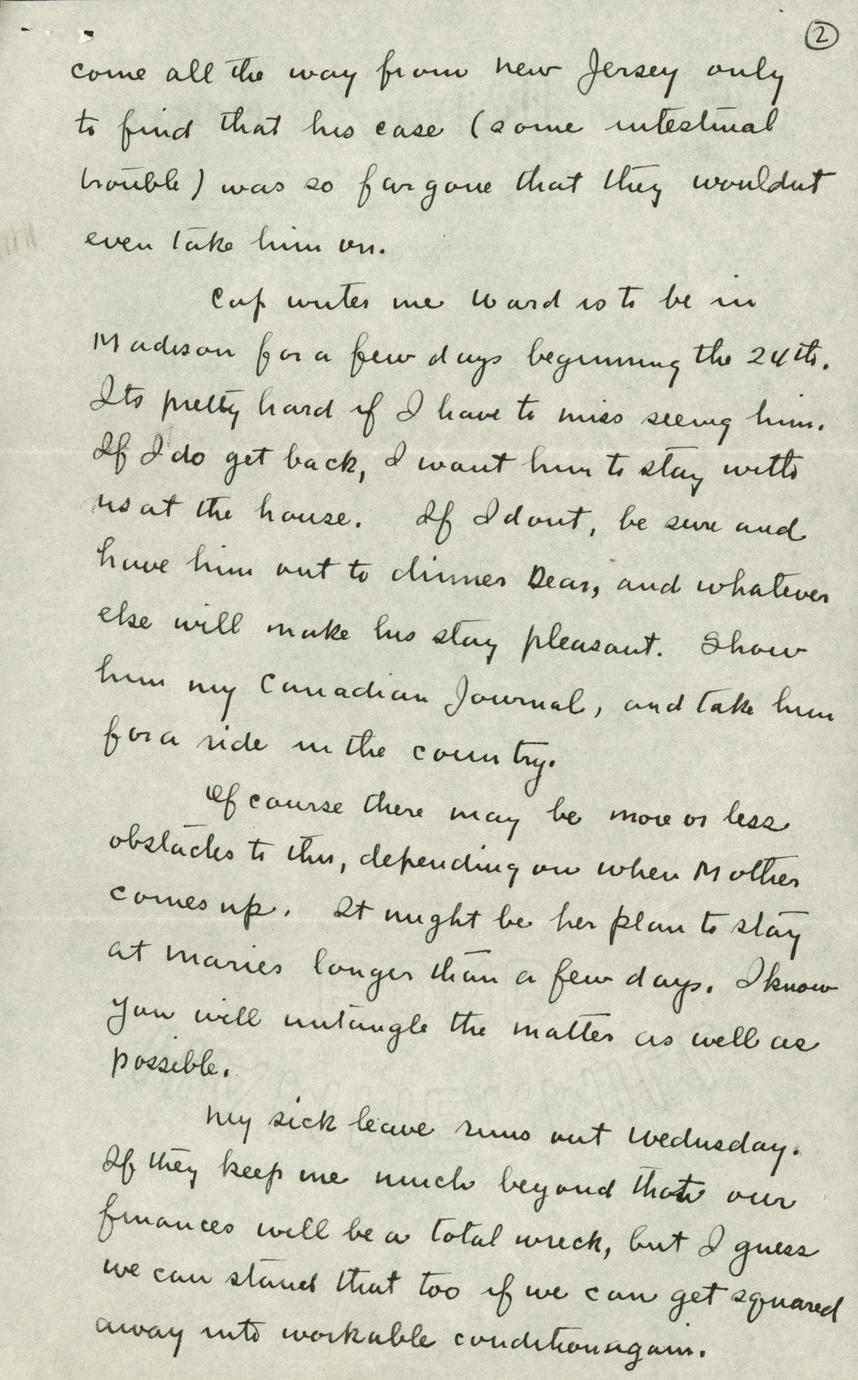 2
come all the way from New Jersey only
to find that his case (some intestinal
trouble) was so far gone that they wouldnt
even take him on.
Cap writes me Ward is to be in
Madison for a few days beginning the 24th.
Its pretty hard if I have to miss seeing him.
If I do get back, I want him to stay with
us at the house. If I dont, be sure and
have him out to dinner Dear, and whatever
else will make his stay pleasant. Show
him my Canadian Journal, and take him
for a ride in the country.
Of course there may be more or less
obstacles to this, depending on when Mother
comes up. It might be her plan to stay
at Maries longer than a few days. I know
you will untangle the matter as well as
possible.
My sick leave runs out Wednesday.
If they keep me much beyond that our
finances will be a total wreck, but I guess
we can stand that too if we can get squared
away into workable condition again.